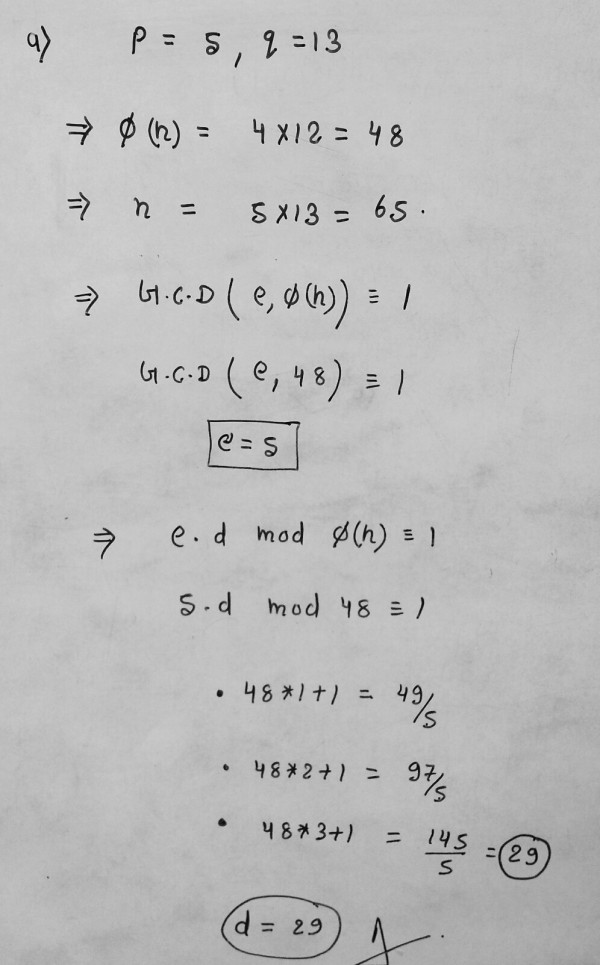 a) P = 5, q = 13
⇒ ϕ(n) = 4 × 12 = 48
⇒ n = 5 × 13 = 65.
⇒ G.C.D ( e, ϕ(n) ) ≡ 1
G.C.D ( e, 48 ) ≡ 1
e = 5
⇒ e. d mod ϕ(n) ≡ 1
5. d mod 48 ≡ 1
• 48 * 1 + 1 = 49/5
• 48 * 2 + 1 = 97/5
• 48 * 3 + 1 = 145/5 = 29
d = 29